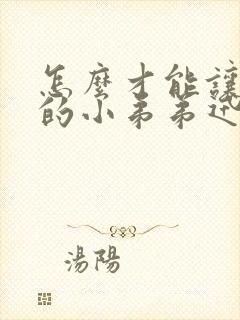 怎麼才能讓
的小弟弟
湯陽